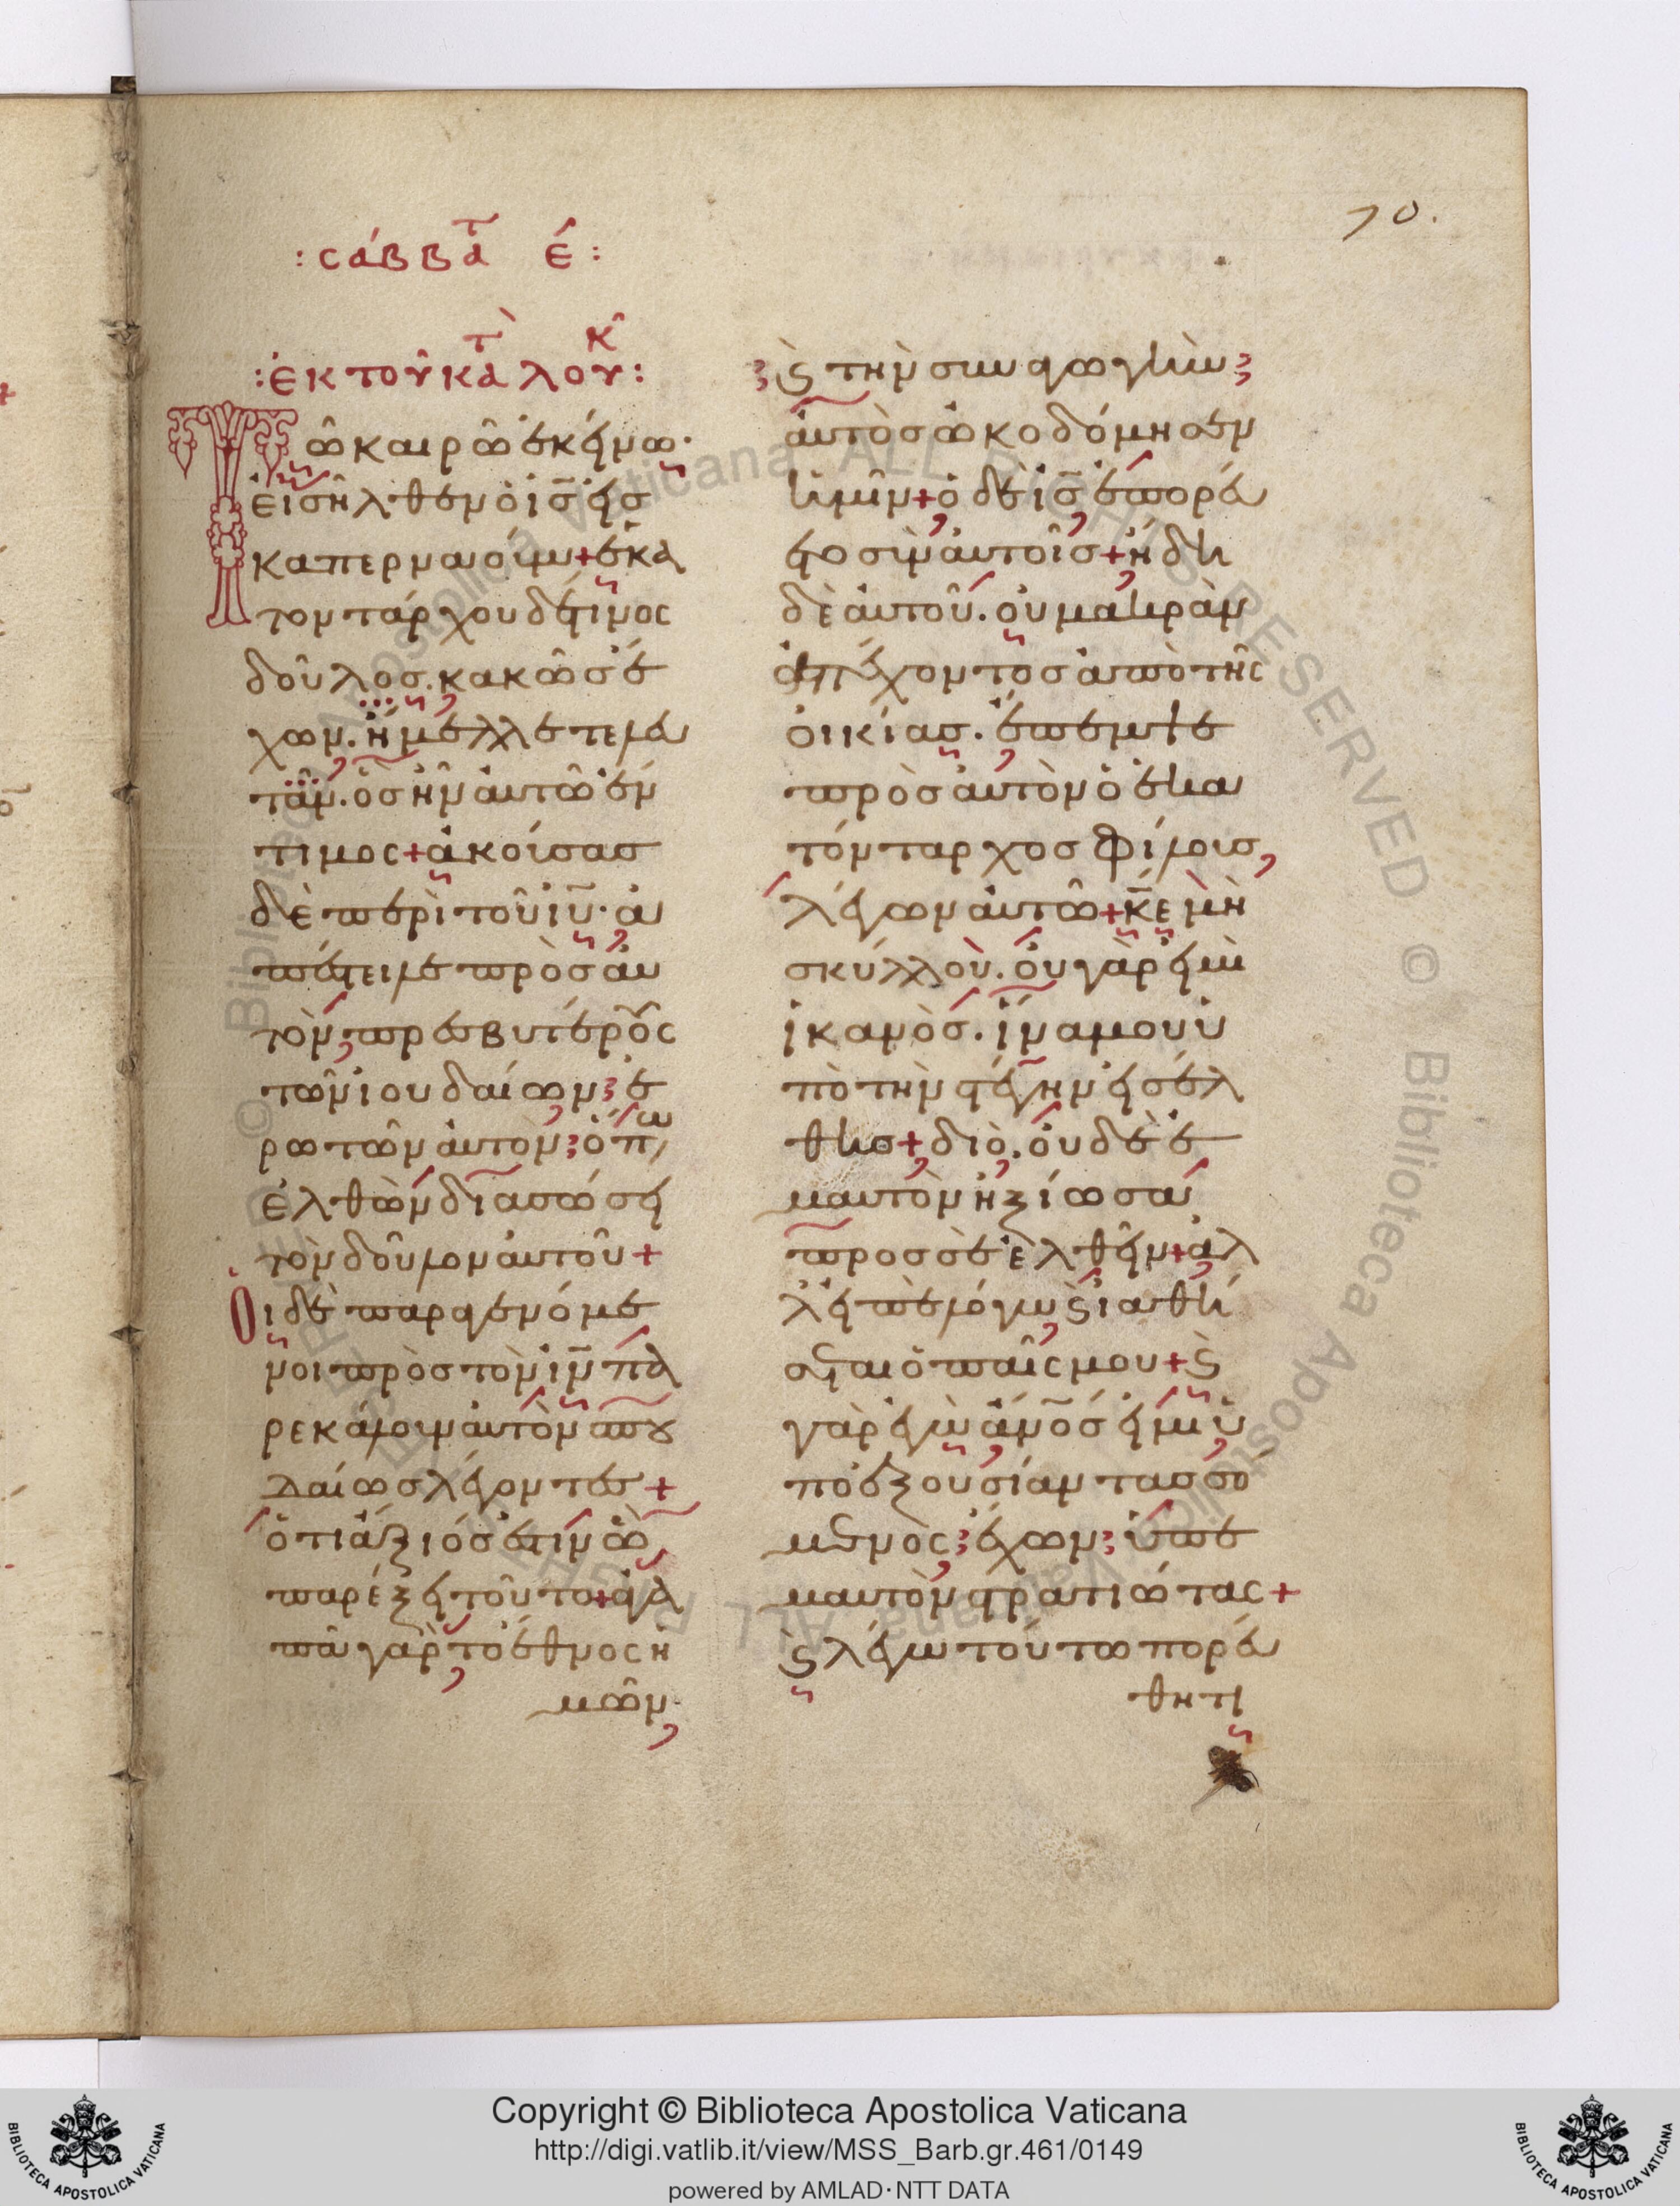 70.
: σάββατ έ :
: ἐκ τοῦ κατὰ λουκ :
Τῶ καιρῶ ἐκείνω·
εἰσῆλθεν ὁ ις εἰσ
καπερναούμ + ἑκα
τοντάρχου δέ τινος
δοῦλοσ. κακῶσ ἔ
χων. ἤμελλε τελευ
τᾶν. ὃσ ἦν αὐτῶ ἔν
τιμος + ἀκούσασ
δὲ περὶ τοῦ ιυ· ἀ
πέστειλε πρὸσ αὐ
τὸν πρεσβυτέρους
τῶν ἰουδαίων ἐ
ρωτῶν αὐτὸν ὅπω
ἐλθὼν διασώσει
τὸν δοῦλον αὐτοῦ +
Οἱ δὲ παραγενόμε
νοι πρὸς τὸν ιν πα
ρεκάλουν αὐτὸν σπου
δαίωσ λέγοντεσ +
ὅτι ἄξιόσ ἐστιν ὧ
παρέξει τοῦτο + ἀγα
πᾶ γὰρ τὸ ἔθνος ἡ
μῶν·
ϛ τὴν συναγωγὴν
αὐτὸσ ὠκοδόμησεν
ἡμῖν + ὁ δὲ ισ ἐπορεύ
ετο σὺν αὐτοῖσ + ἤδη
δὲ αὐτοῦ. οὐ μακρὰν
ἀπέχοντοσ ἀπὸ τῆς
οἰκίασ. ἔπεμψε
πρὸσ αὐτὸν ὁ ἑκα
τόνταρχοσ φίλουσ
λέγων αὐτῶ + κε μὴ
σκύλλου. οὐ γάρ εἰμι
ἱκανὸσ. ἵνα μου ὑ
πὸ τὴν στέγην εἰσέλ
θησ + διὸ. οὐδὲ ἐ
μαυτὸν ἠξίωσα
προσ σὲ ἐλθεῖν + ἀλ
λὰ εἰπὲ λόγω ϛ ἰαθή
σεται ὁ παῖς μου + ϛ
γὰρ ἐγὼ ἄνοσ εἰμι ὑ
πὸ ἐξουσίαν τασσό
μενος ἔχων ὑπ ἐ
μαυτὸν στρατιώτας +
ϛ λέγω τούτω πορεύ
θητι
Copyright © Biblioteca Apostolica Vaticana
http://digi.vatlib.it/view/MSS_Barb.gr.461/0149
powered by AMLAD·NTT DATA